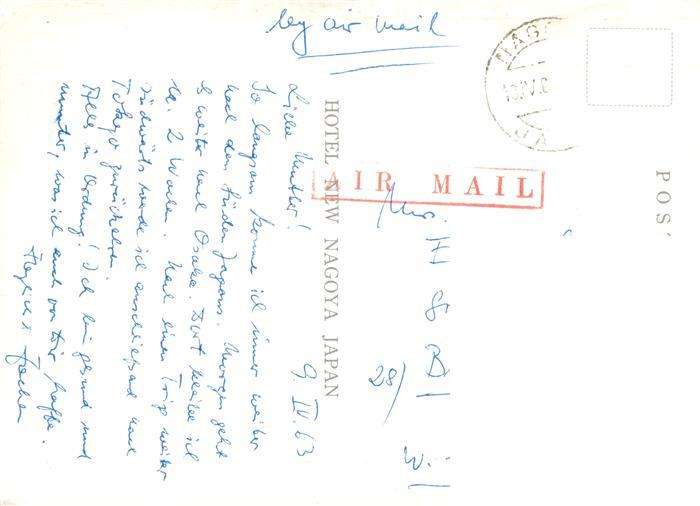 by air mail
NAG
AIR MAIL
HOTEL NEW NAGOYA JAPAN
POS
9. IV. 63
Liebe Mutter!
So langsam komme ich immer weiter
nach den Süden Japans. Morgen geht
es weiter nach Osaka. Dort bleibe ich
2 Wochen. Nach einen Trip weiter
südwärts werde ich anschließend nach
Tokyo zurückkehren.
Alles in Ordnung! Ich bin gesund und
munter, was ich auch von Dir hoffe.
Herzlichst Jochen
Mrs.
H
S
B
28/
W